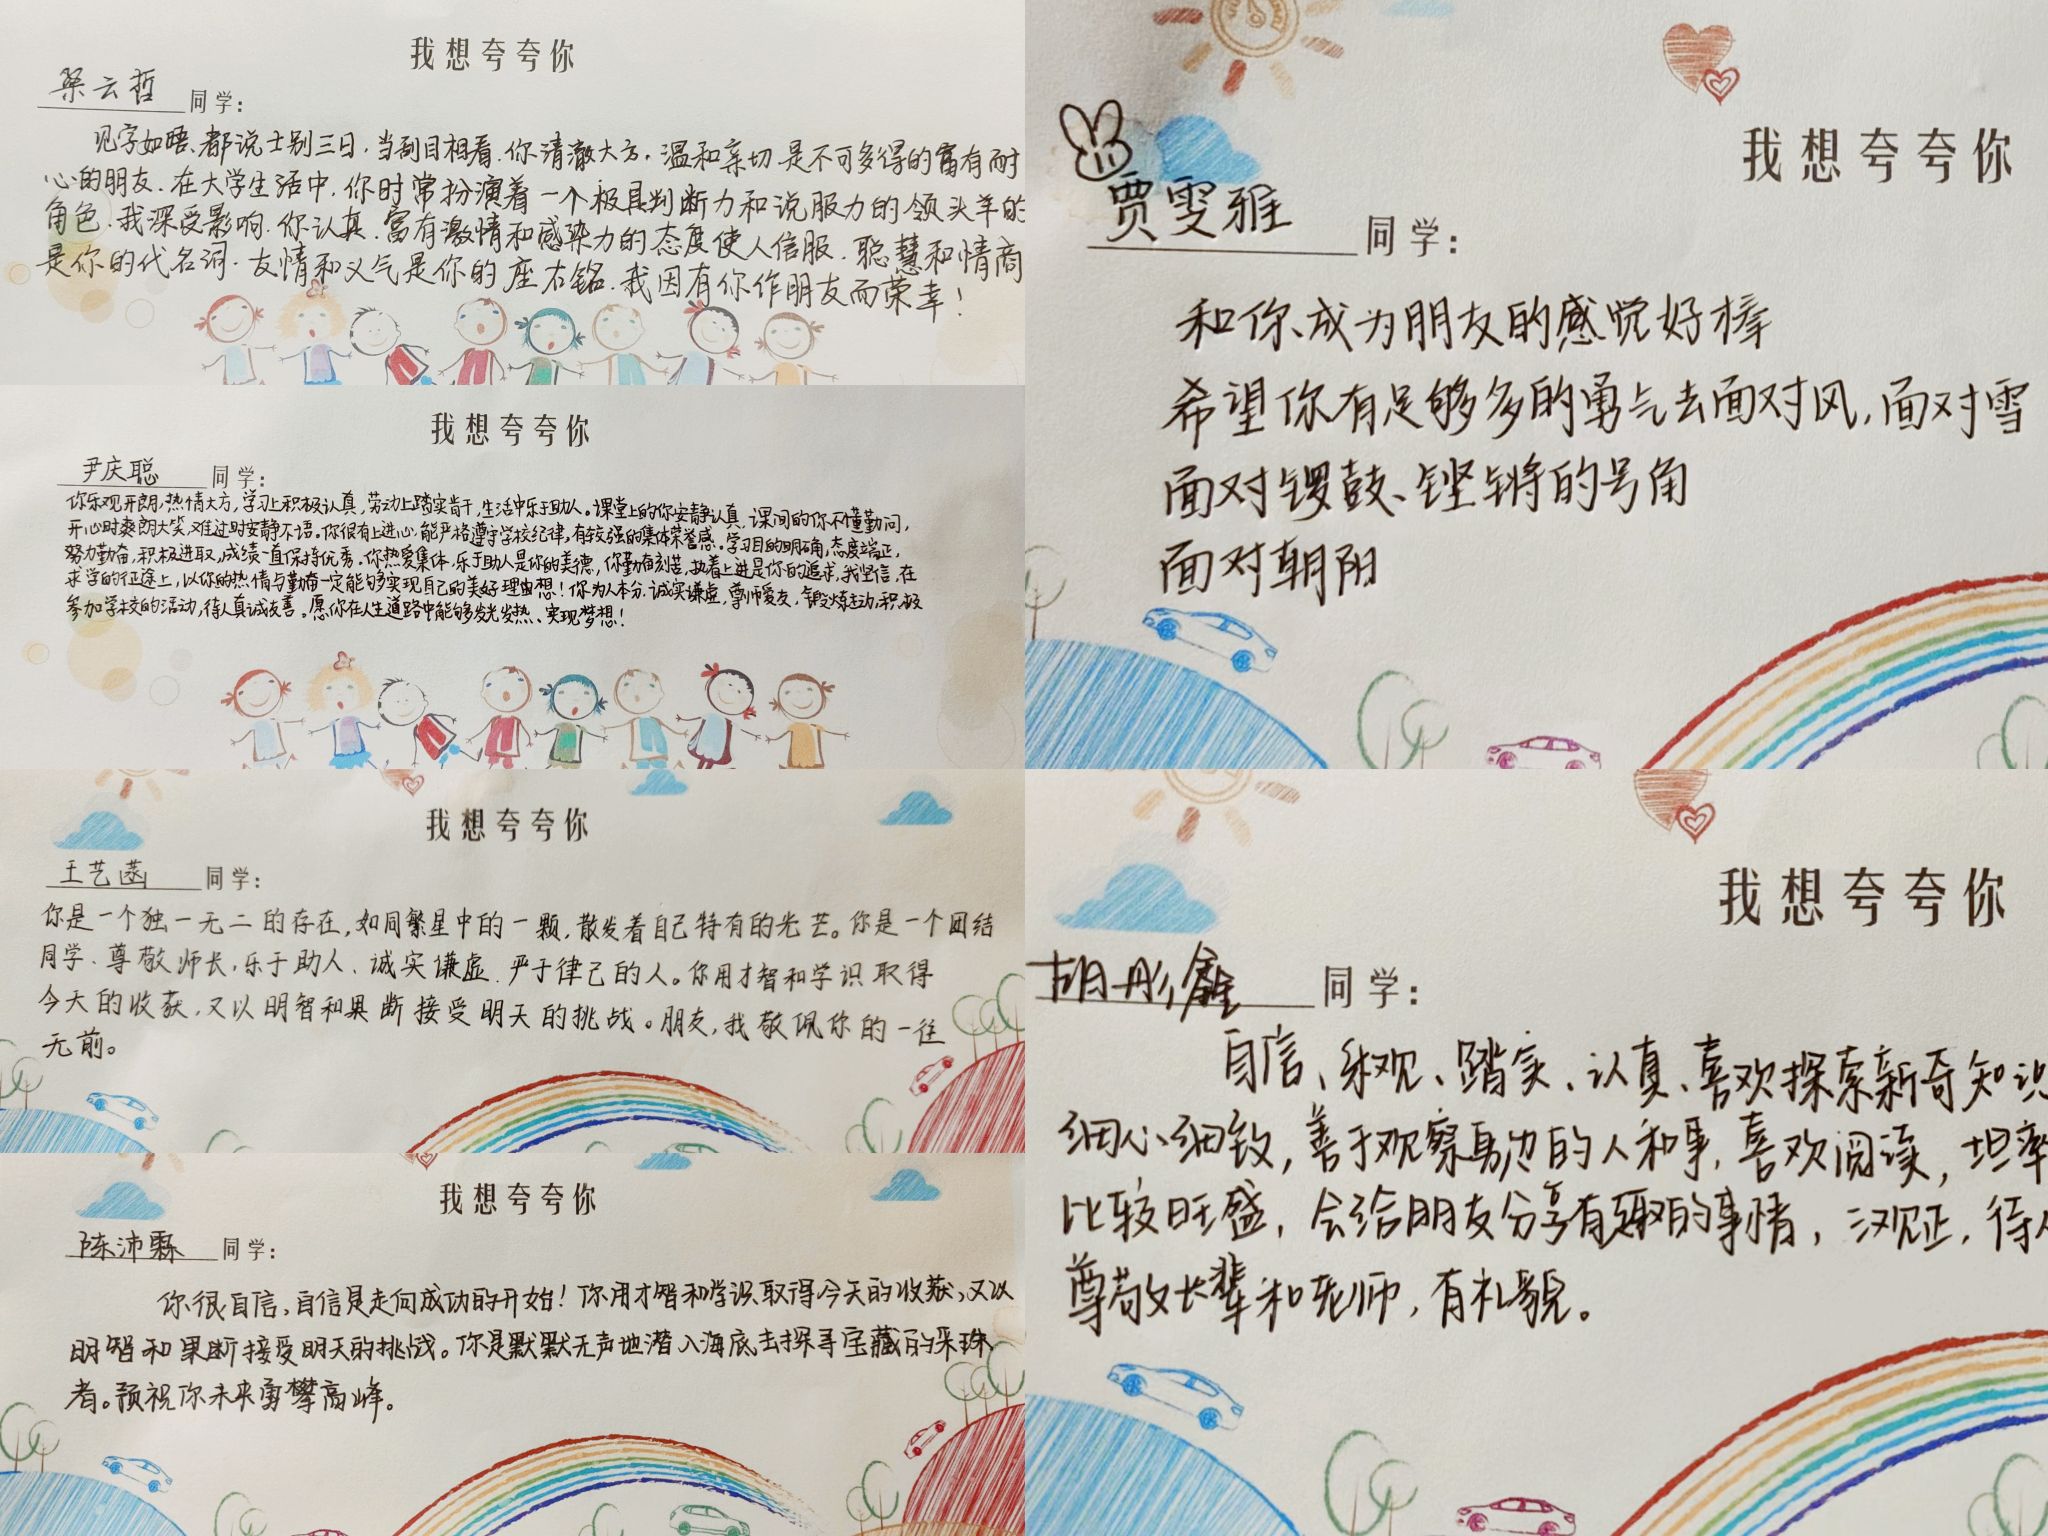 我想夸夸你
梁云哲 同学：
见字如晤、都说士别三日，当刮目相看.你清澈大方.温和亲切是不可多得的富有耐
心的朋友.在大学生活中.你时常扮演着一个极具判断力和说服力的领头羊的
角色.我深受影响.你认真.富有激情和感染力的态度使人信服.聪慧和情商
是你的代名词.友情和义气是你的座右铭.我因有你作朋友而荣幸！
我想夸夸你
尹庆聪 同学：
你乐观开朗，热情大方，学习上积极认真，劳动上踏实肯干，生活中乐于助人。课堂上的你安静认真，课间的你不懂勤问，
开心时爽朗大笑，难过时安静不语。你很有上进心，能严格遵守学校纪律，有较强的集体荣誉感。学习目的明确，态度端正，
努力勤奋，积极进取，成绩一直保持优秀。你热爱集体，乐于助人是你的美德，你勤奋刻苦，执着上进是你的追求，我坚信，在
求学的征途上，以你的热情与勤奋一定能够实现自己的美好理由想！你为人本分，诚实谦虚，尊师爱友，锻炼运动，积极
参加学校的活动，待人真诚友善。愿你在人生道路中能够发光发热、实现梦想！
我想夸夸你
王艺菡 同学：
你是一个独一无二的存在，如同繁星中的一颗，散发着自己特有的光芒。你是一个团结
同学、尊敬师长，乐于助人、诚实谦虚、严于律己的人。你用才智和学识取得
今天的收获，又以明智和果断接受明天的挑战。朋友，我敬佩你的一往
无前。
我想夸夸你
陈沛霖 同学：
你很自信，自信是走向成功的开始！你用才智和学识取得今天的收获，又以
明智和果断接受明天的挑战。你是默默无声地潜入海底去探寻宝藏的采珠
者。预祝你未来勇攀高峰。
我想夸夸你
贾雯雅 同学：
和你成为朋友的感觉好棒
希望你有足够多的勇气去面对风，面对雪
面对锣鼓、铿锵的号角
面对朝阳
我想夸夸你
胡彤鑫 同学：
自信、乐观、踏实、认真、喜欢探索新奇知识
细心细致，善于观察身边的人和事，喜欢阅读，坦率
比较旺盛，会给朋友分享有趣的事情，三观正，待人
尊敬长辈和老师，有礼貌。